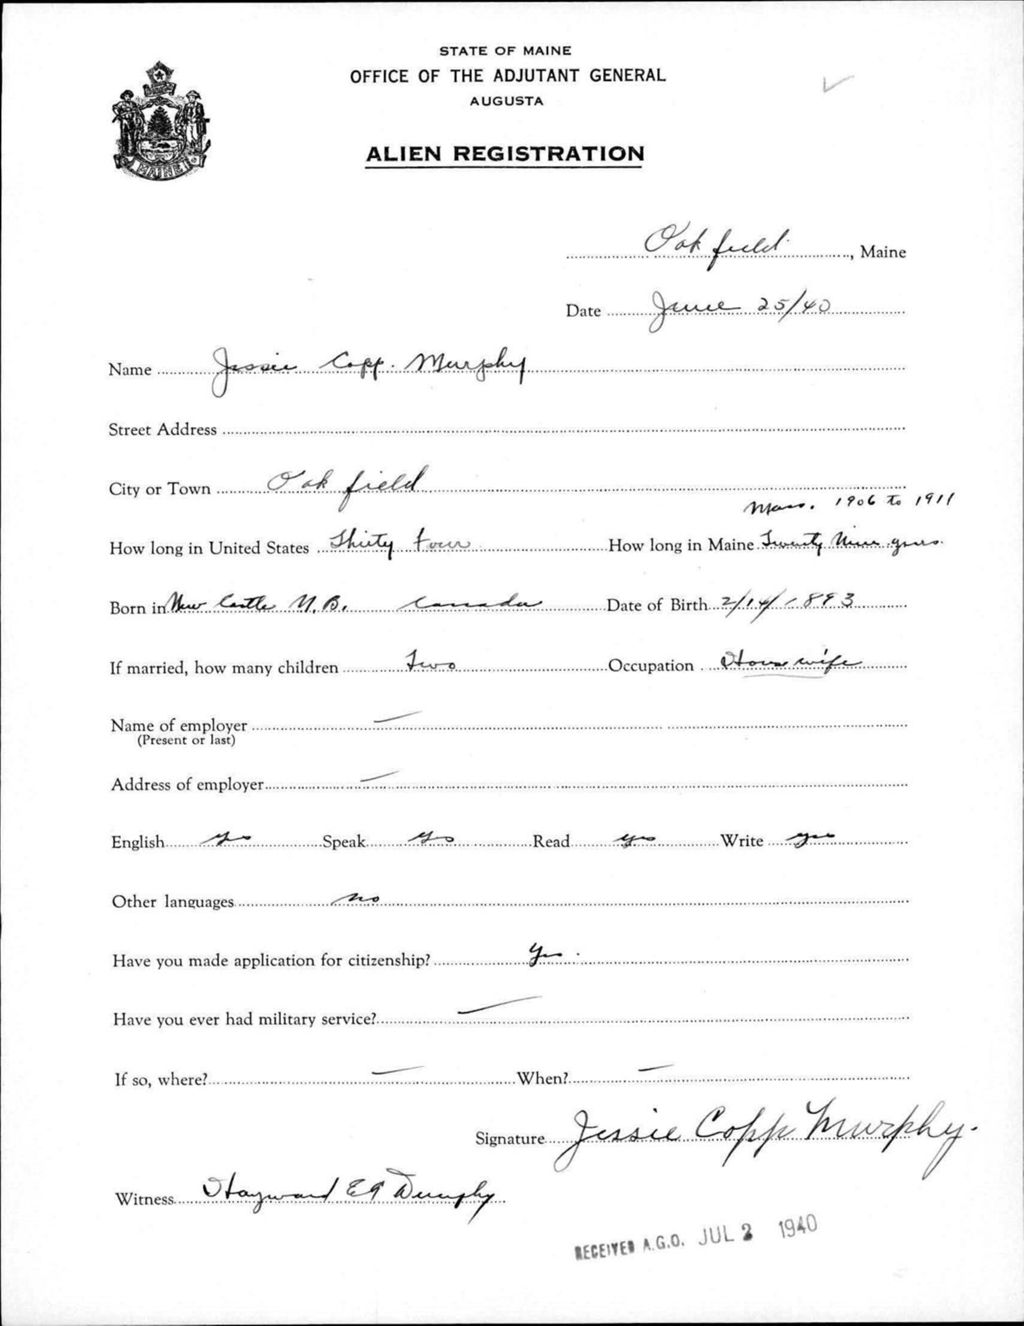 STATE OF MAINE
OFFICE OF THE ADJUTANT GENERAL
AUGUSTA
ALIEN REGISTRATION
MAINE
Oakfield, Maine
Date June 25/40
Name Jessie Copp. Murphy
Street Address
City or Town Oakfield
Mass. 1906 to 1911
How long in United States Thirty four How long in Maine Twenty Nine years.
Born in New Castle N.B. Canada Date of Birth 2/14/1893
If married, how many children Two Occupation Housewife
Name of employer
(Present or last)
Address of employer
English yes Speak yes Read yes Write yes
Other languages no
Have you made application for citizenship? Yes.
Have you ever had military service?
If so, where? When?
Signature Jessie Copp Murphy.
Witness Hayward Dunphy
RECEIVED A.G.O. JUL 2 1940